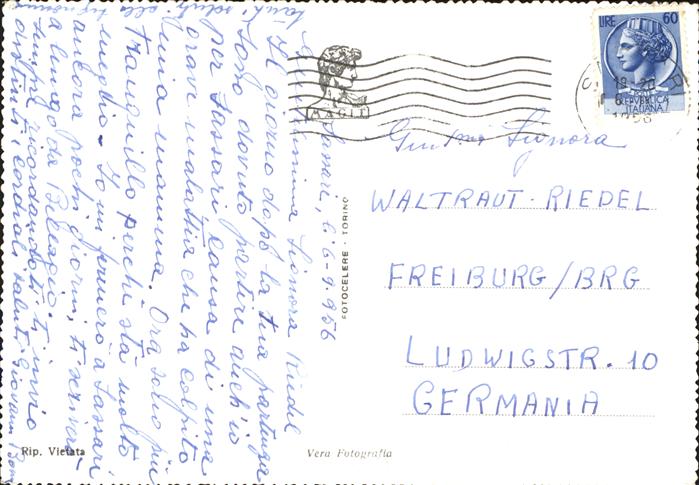 Sassari, li 6-9-956
Gentilissima Signora Riedel
Il giorno dopo la tua partenza
sono dovuto partire anch'io
per Sassari causa di una
grave malattia che ha colpito
mia mamma. Ora sono più
tranquillo perchè sta molto
meglio. Io mi fermerò a Sassari
ancora pochi giorni, ti scriverò
a lungo da Bellagio.
sempre ricordandoti ti invio
distinti cordiali saluti Giovanni
FOTOCELERE - TORINO
Rip. Vietata
Vera Fotografia
LIRE 60
REPVBBLICA
ITALIANA
1956
Signora
WALTRAUT - RIEDEL
FREIBURG/BRG
LUDWIGSTR. 10
GERMANIA